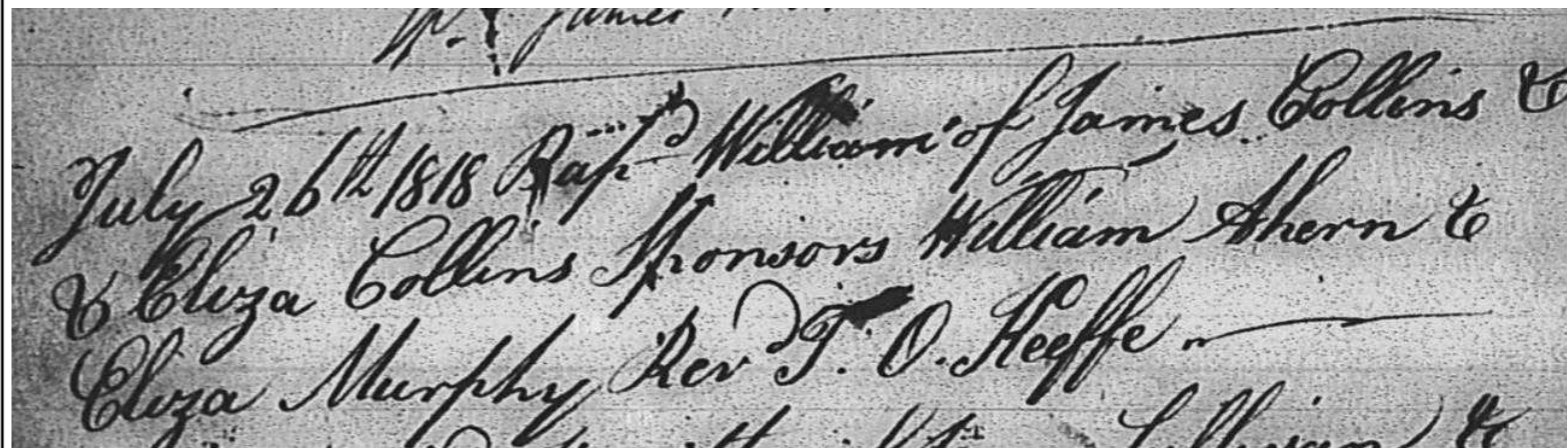 James
July 26th 1818 Bapd William of James Collins &
& Eliza Collins Sponsors William Ahern &
Eliza Murphy Revd T. O. Keeffe